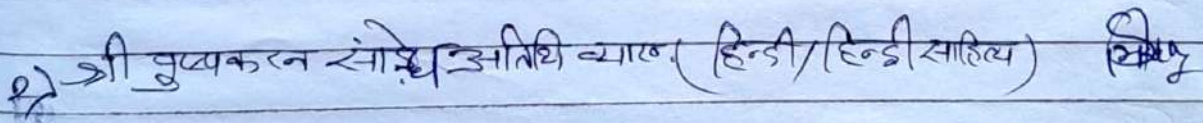 2) श्री पुष्पकरन सांडे अतिथि व्याख्या. (हिन्दी/हिन्दी साहित्य)